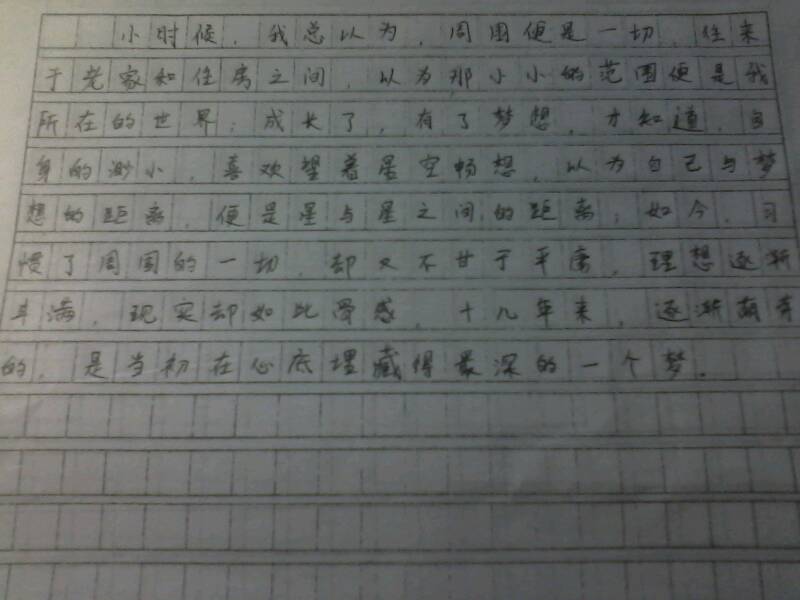 小时候，我总以为，周围便是一切，往来
于老家和住房之间，以为那小小的范围便是我
所在的世界；成长了，有了梦想，才知道，自
身的渺小，喜欢望着星空畅想，以为自己与梦
想的距离，便是星与星之间的距离；如今，习
惯了周围的一切，却又不甘于平庸，理想逐渐
丰满，现实却如此骨感，十几年来，逐渐萌芽
的，是当初在心底埋藏得最深的一个梦。